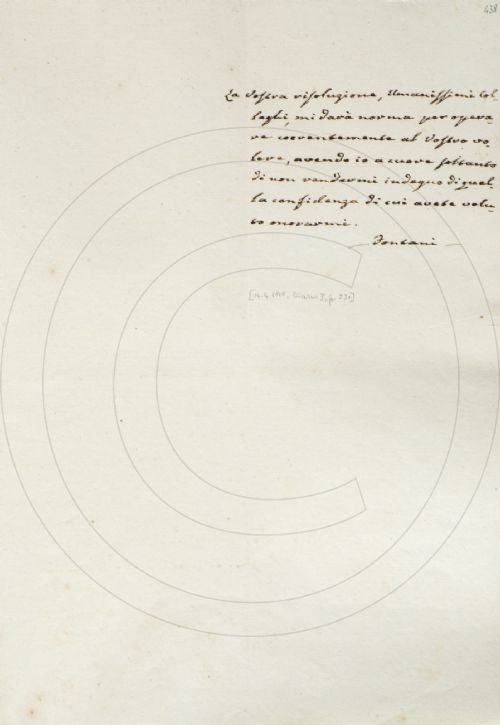 438
La Vostra risoluzione, Umanissimi Col
leghi, mi darà norma per opera
re coerentemente al Vostro vo-
lere, avendo io a cuore soltanto
di non rendermi indegno di quel
la confidenza di cui avete volu-
to onorarmi.
Fontani